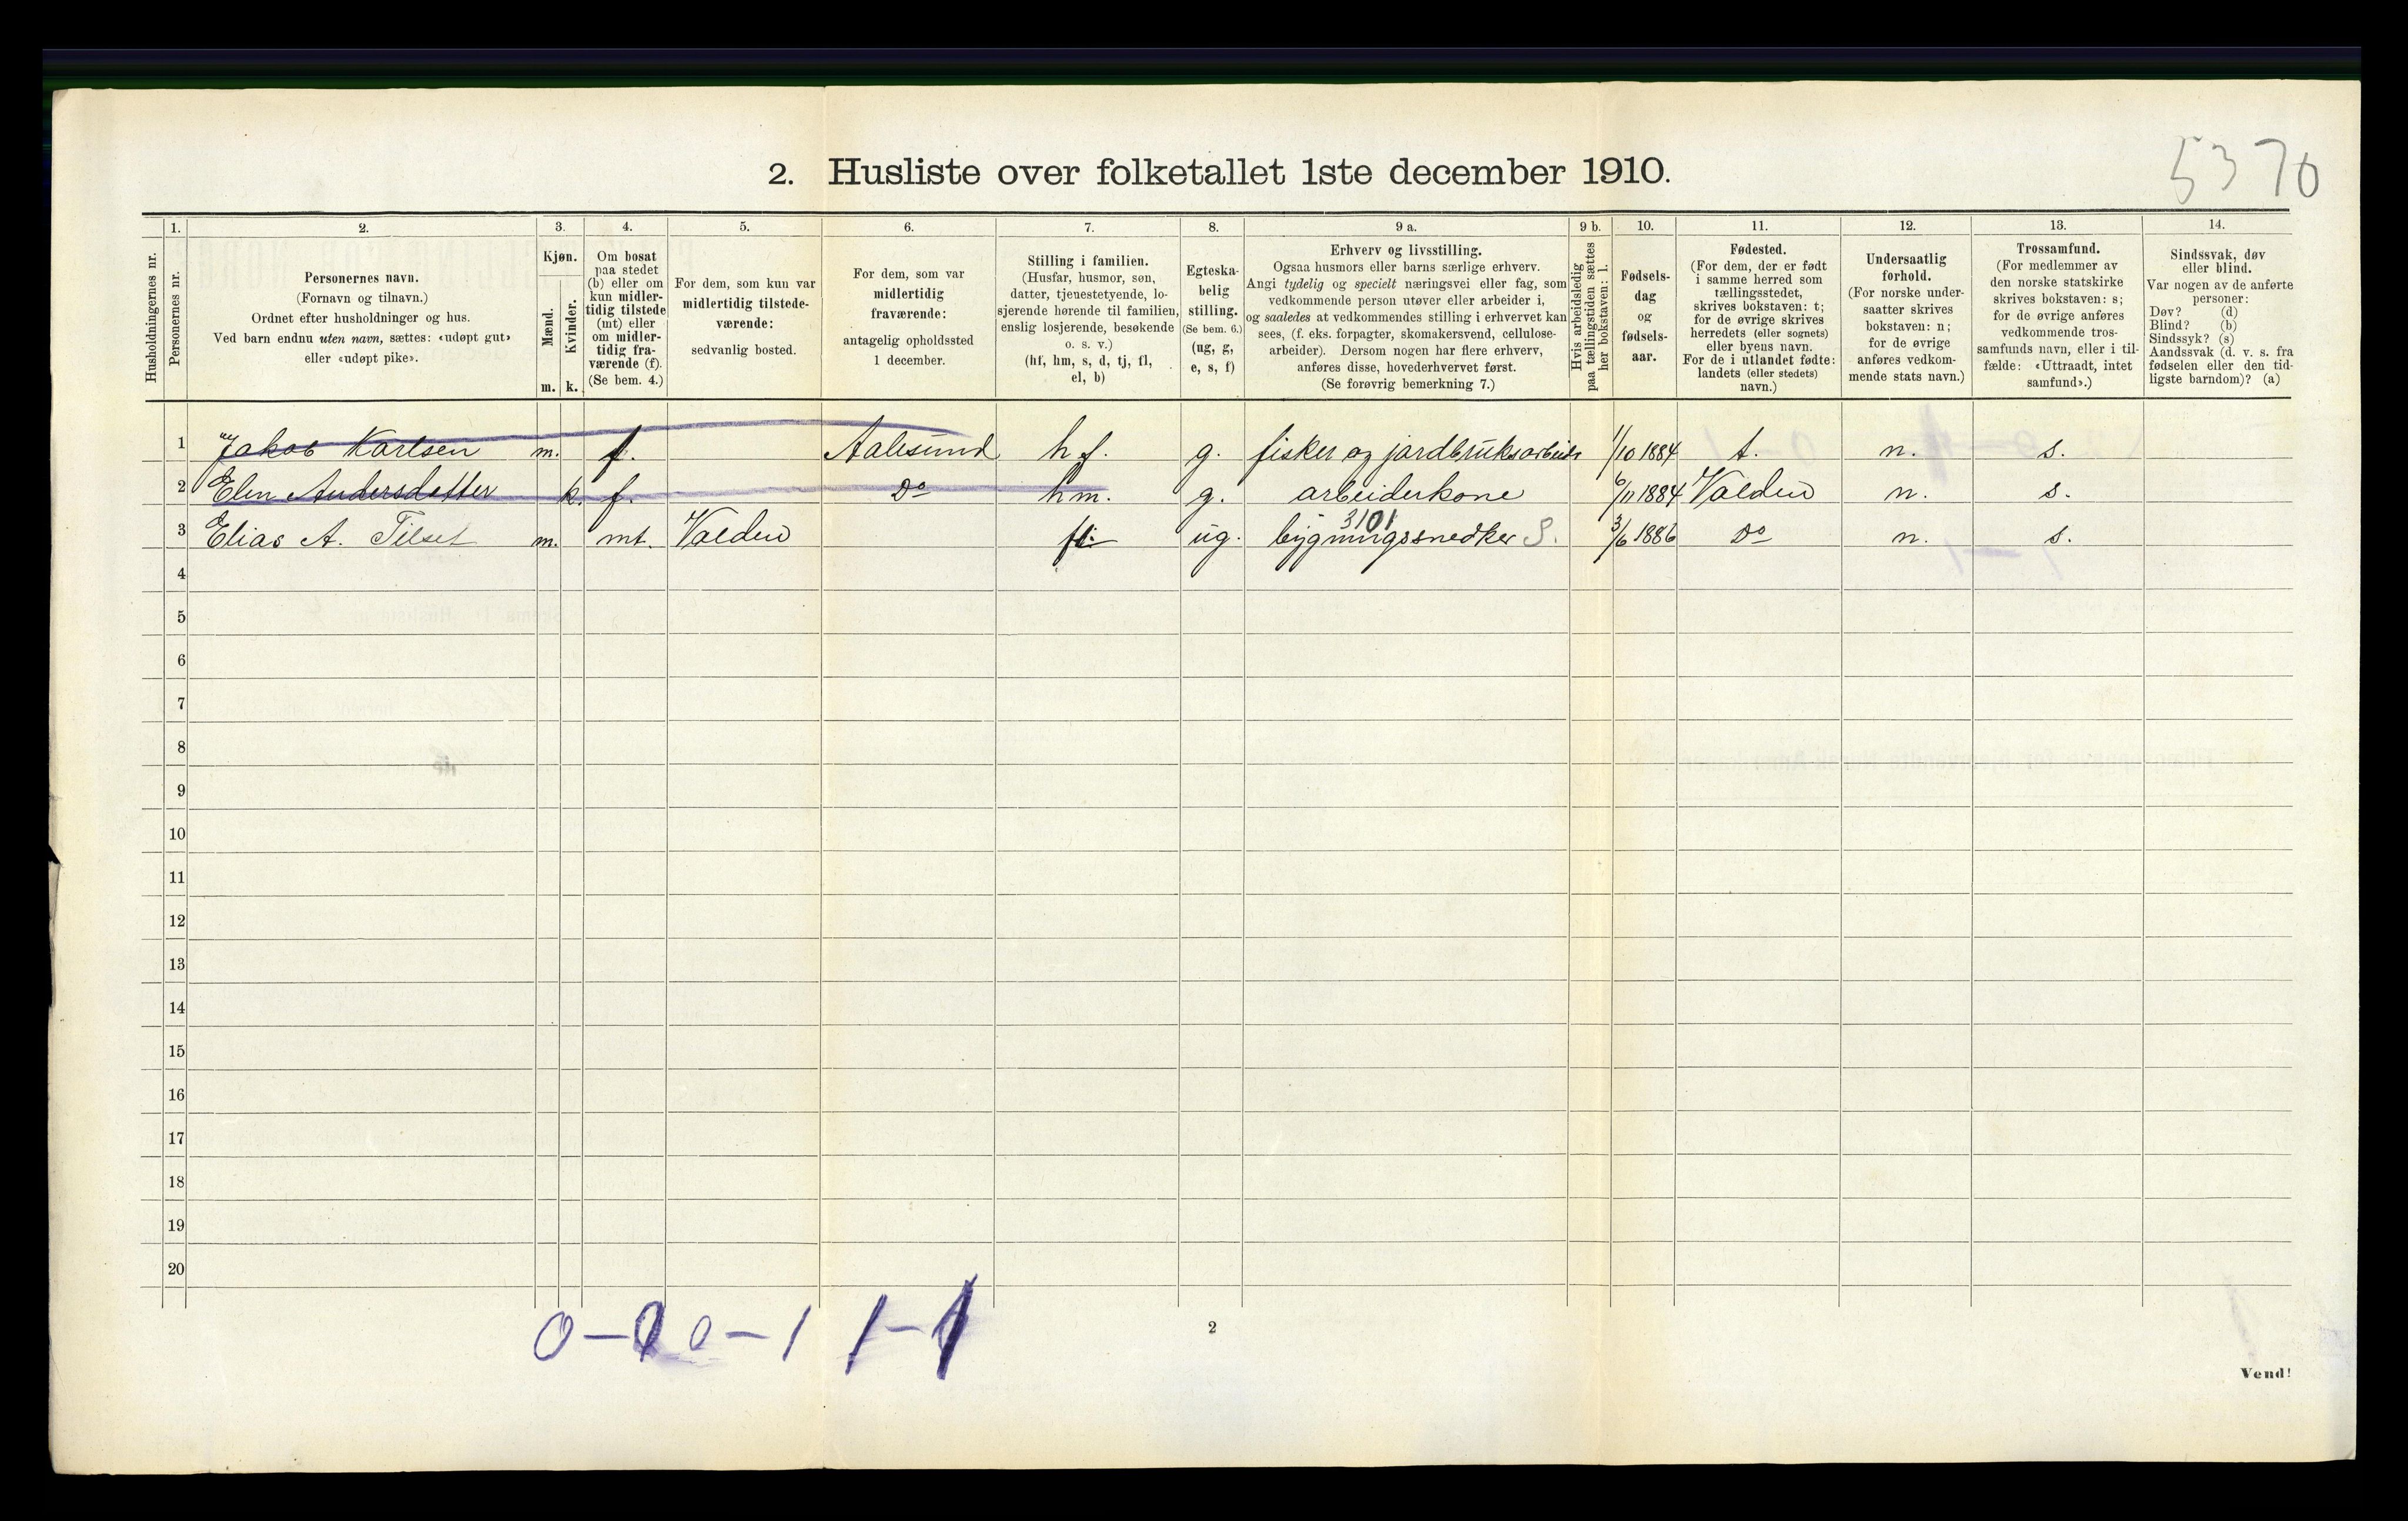 5370
2. Husliste over folketallet 1ste december 1910.
Husholdningernes nr.
1.
Personernes nr.
2.
Personernes navn.
(Fornavn og tilnavn.)
Ordnet efter husholdninger og hus.
Ved barn endnu uten navn, sættes: «udøpt gut»
eller «udøpt pike».
3.
Kjøn.
Mænd.
Kvinder.
m. k.
4.
Om bosat
paa stedet
(b) eller om
kun midler-
tidig tilstede
(mt) eller
om midler-
tidig fra-
værende (f).
(Se bem. 4.)
5.
For dem, som kun var
midlertidig tilstede-
værende:
sedvanlig bosted.
6.
For dem, som var
midlertidig
fraværende:
antagelig opholdssted
1 december.
7.
Stilling i familien.
(Husfar, husmor, søn,
datter, tjenestetyende, lo-
sjerende hørende til familien,
enslig losjerende, besøkende
o. s. v.)
(hf, hm, s, d, tj, fl,
el, b)
8.
Egteska-
belig
stilling.
(Se bem. 6.)
(ug, g,
e, s, f)
9 a.
Erhverv og livsstilling.
Ogsaa husmors eller barns særlige erhverv.
Angi tydelig og specielt næringsvei eller fag, som
vedkommende person utøver eller arbeider i,
og saaledes at vedkommendes stilling i erhvervet kan
sees, (f. eks. forpagter, skomakersvend, cellulose-
arbeider). Dersom nogen har flere erhverv,
anføres disse, hovederhvervet først.
(Se forøvrig bemerkning 7.)
9 b.
Hvis arbeidsledig
paa tællingstiden sættes
her bokstaven: l.
10.
Fødsels-
dag
og
fødsels-
aar.
11.
Fødested.
(For dem, der er født
i samme herred som
tællingsstedet,
skrives bokstaven: t;
for de øvrige skrives
herredets (eller sognets)
eller byens navn.
For de i utlandet fødte:
landets (eller stedets)
navn.)
12.
Undersaatlig
forhold.
(For norske under-
saatter skrives
bokstaven: n;
for de øvrige
anføres vedkom-
mende stats navn.)
13.
Trossamfund.
(For medlemmer av
den norske statskirke
skrives bokstaven: s;
for de øvrige anføres
vedkommende tros-
samfunds navn, eller i til-
fælde: «Uttraadt, intet
samfund».)
14.
Sindssvak, døv
eller blind.
Var nogen av de anførte
personer:
Døv? (d)
Blind? (b)
Sindssyk? (s)
Aandssvak (d. v. s. fra
fødselen eller den tid-
ligste barndom)? (a)
1 Jakob Karlsen m. f. Aalesund hf. g. fisker og jordbruksarbeider 1/10 1884 t. n. s.
2 Elen Andersdatter k. f. Do hm. g. arbeiderkone 6/11 1884 Valden n. s.
3101
3 Elias A. Tilset m. mt. Valden ug. bygningssnedker S. 3/6 1886 Do n. s.
4
5
6
7
8
9
10
11
12
13
14
15
16
17
18
19
20
0-1 0-1 1-1
2
Vend!